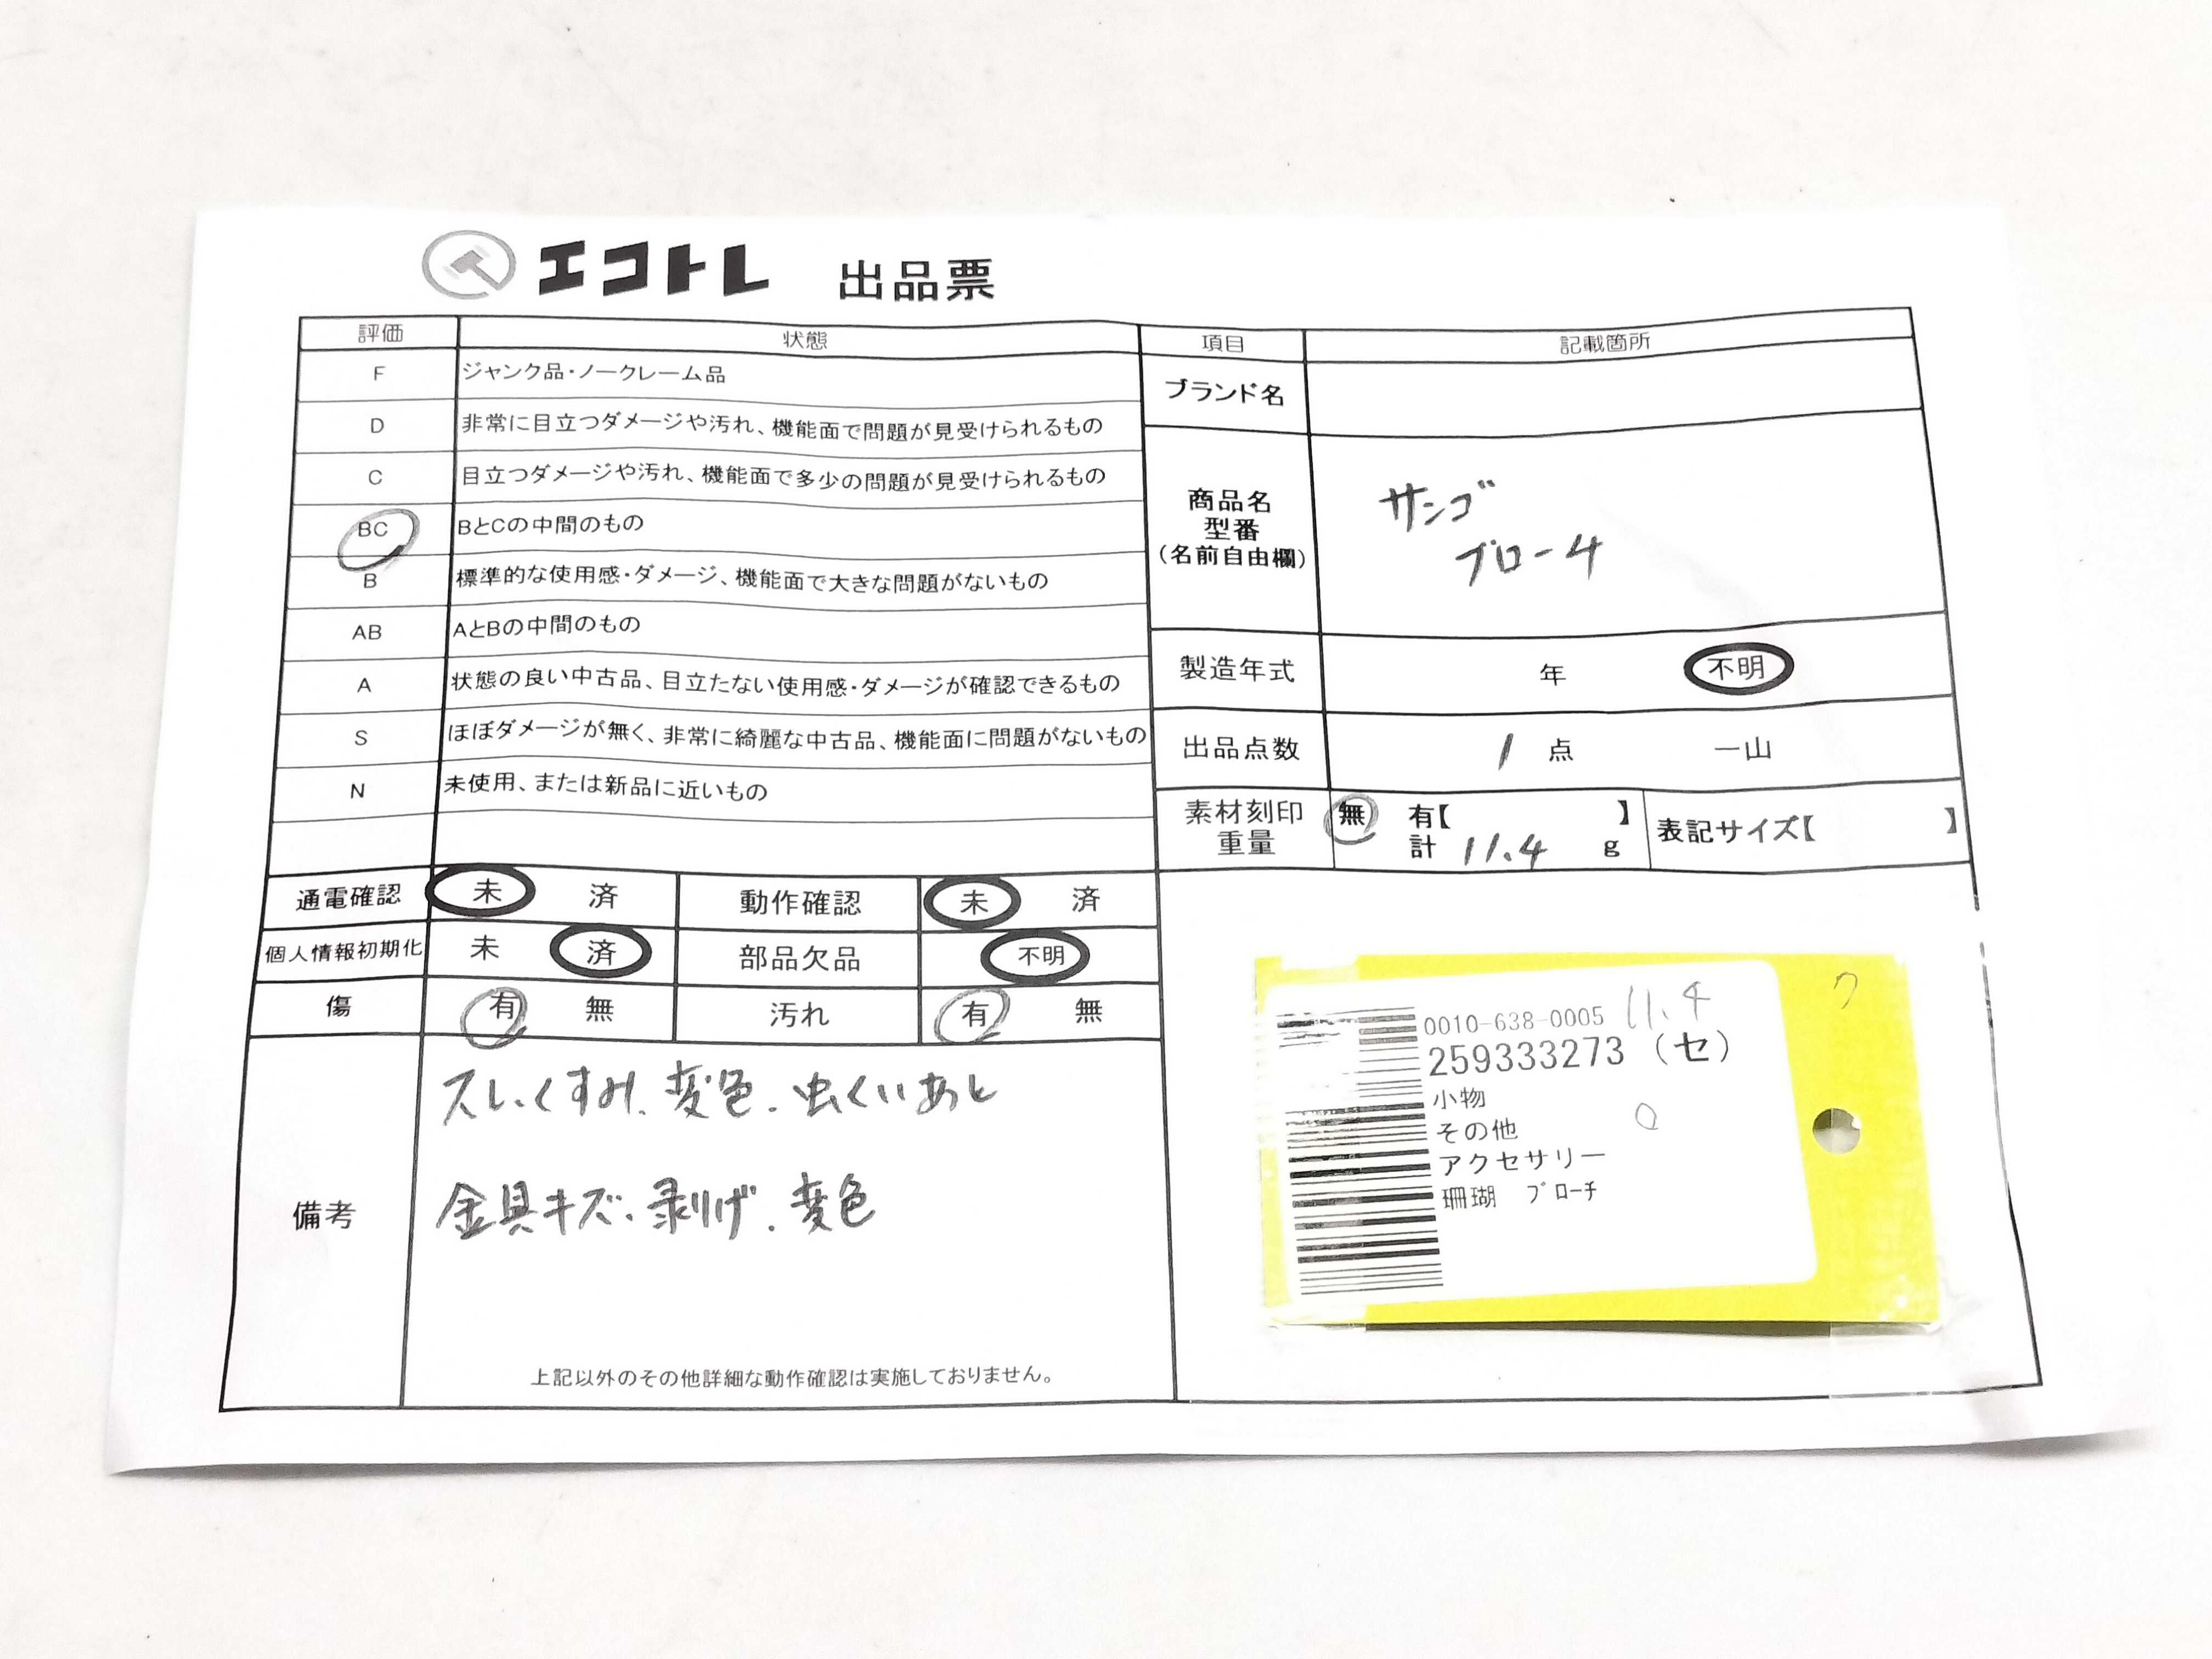 エコトレ 出品票
評価 状態
F ジャンク品・ノークレーム品
D 非常に目立つダメージや汚れ、機能面で問題が見受けられるもの
C 目立つダメージや汚れ、機能面で多少の問題が見受けられるもの
BC BとCの中間のもの
B 標準的な使用感・ダメージ、機能面で大きな問題がないもの
AB AとBの中間のもの
A 状態の良い中古品、目立たない使用感・ダメージが確認できるもの
S ほぼダメージが無く、非常に綺麗な中古品、機能面に問題がないもの
N 未使用、または新品に近いもの
通電確認 未 済 動作確認 未 済
個人情報初期化 未 済 部品欠品 不明
傷 有 無 汚れ 有 無
備考
スレ、くすみ、変色、虫くいあと
金具キズ、剥げ、変色
上記以外のその他詳細な動作確認は実施しておりません。
項目 記載箇所
ブランド名
商品名
型番
(名前自由欄)
サンゴ
ブローチ
製造年式 年 不明
出品点数 1 点 一山
素材刻印 無 有【 】
重量 計 11.4 g
表記サイズ【 】
0010-638-0005 11.4
259333273 (セ)
小物
その他
アクセサリー
珊瑚 ブローチ